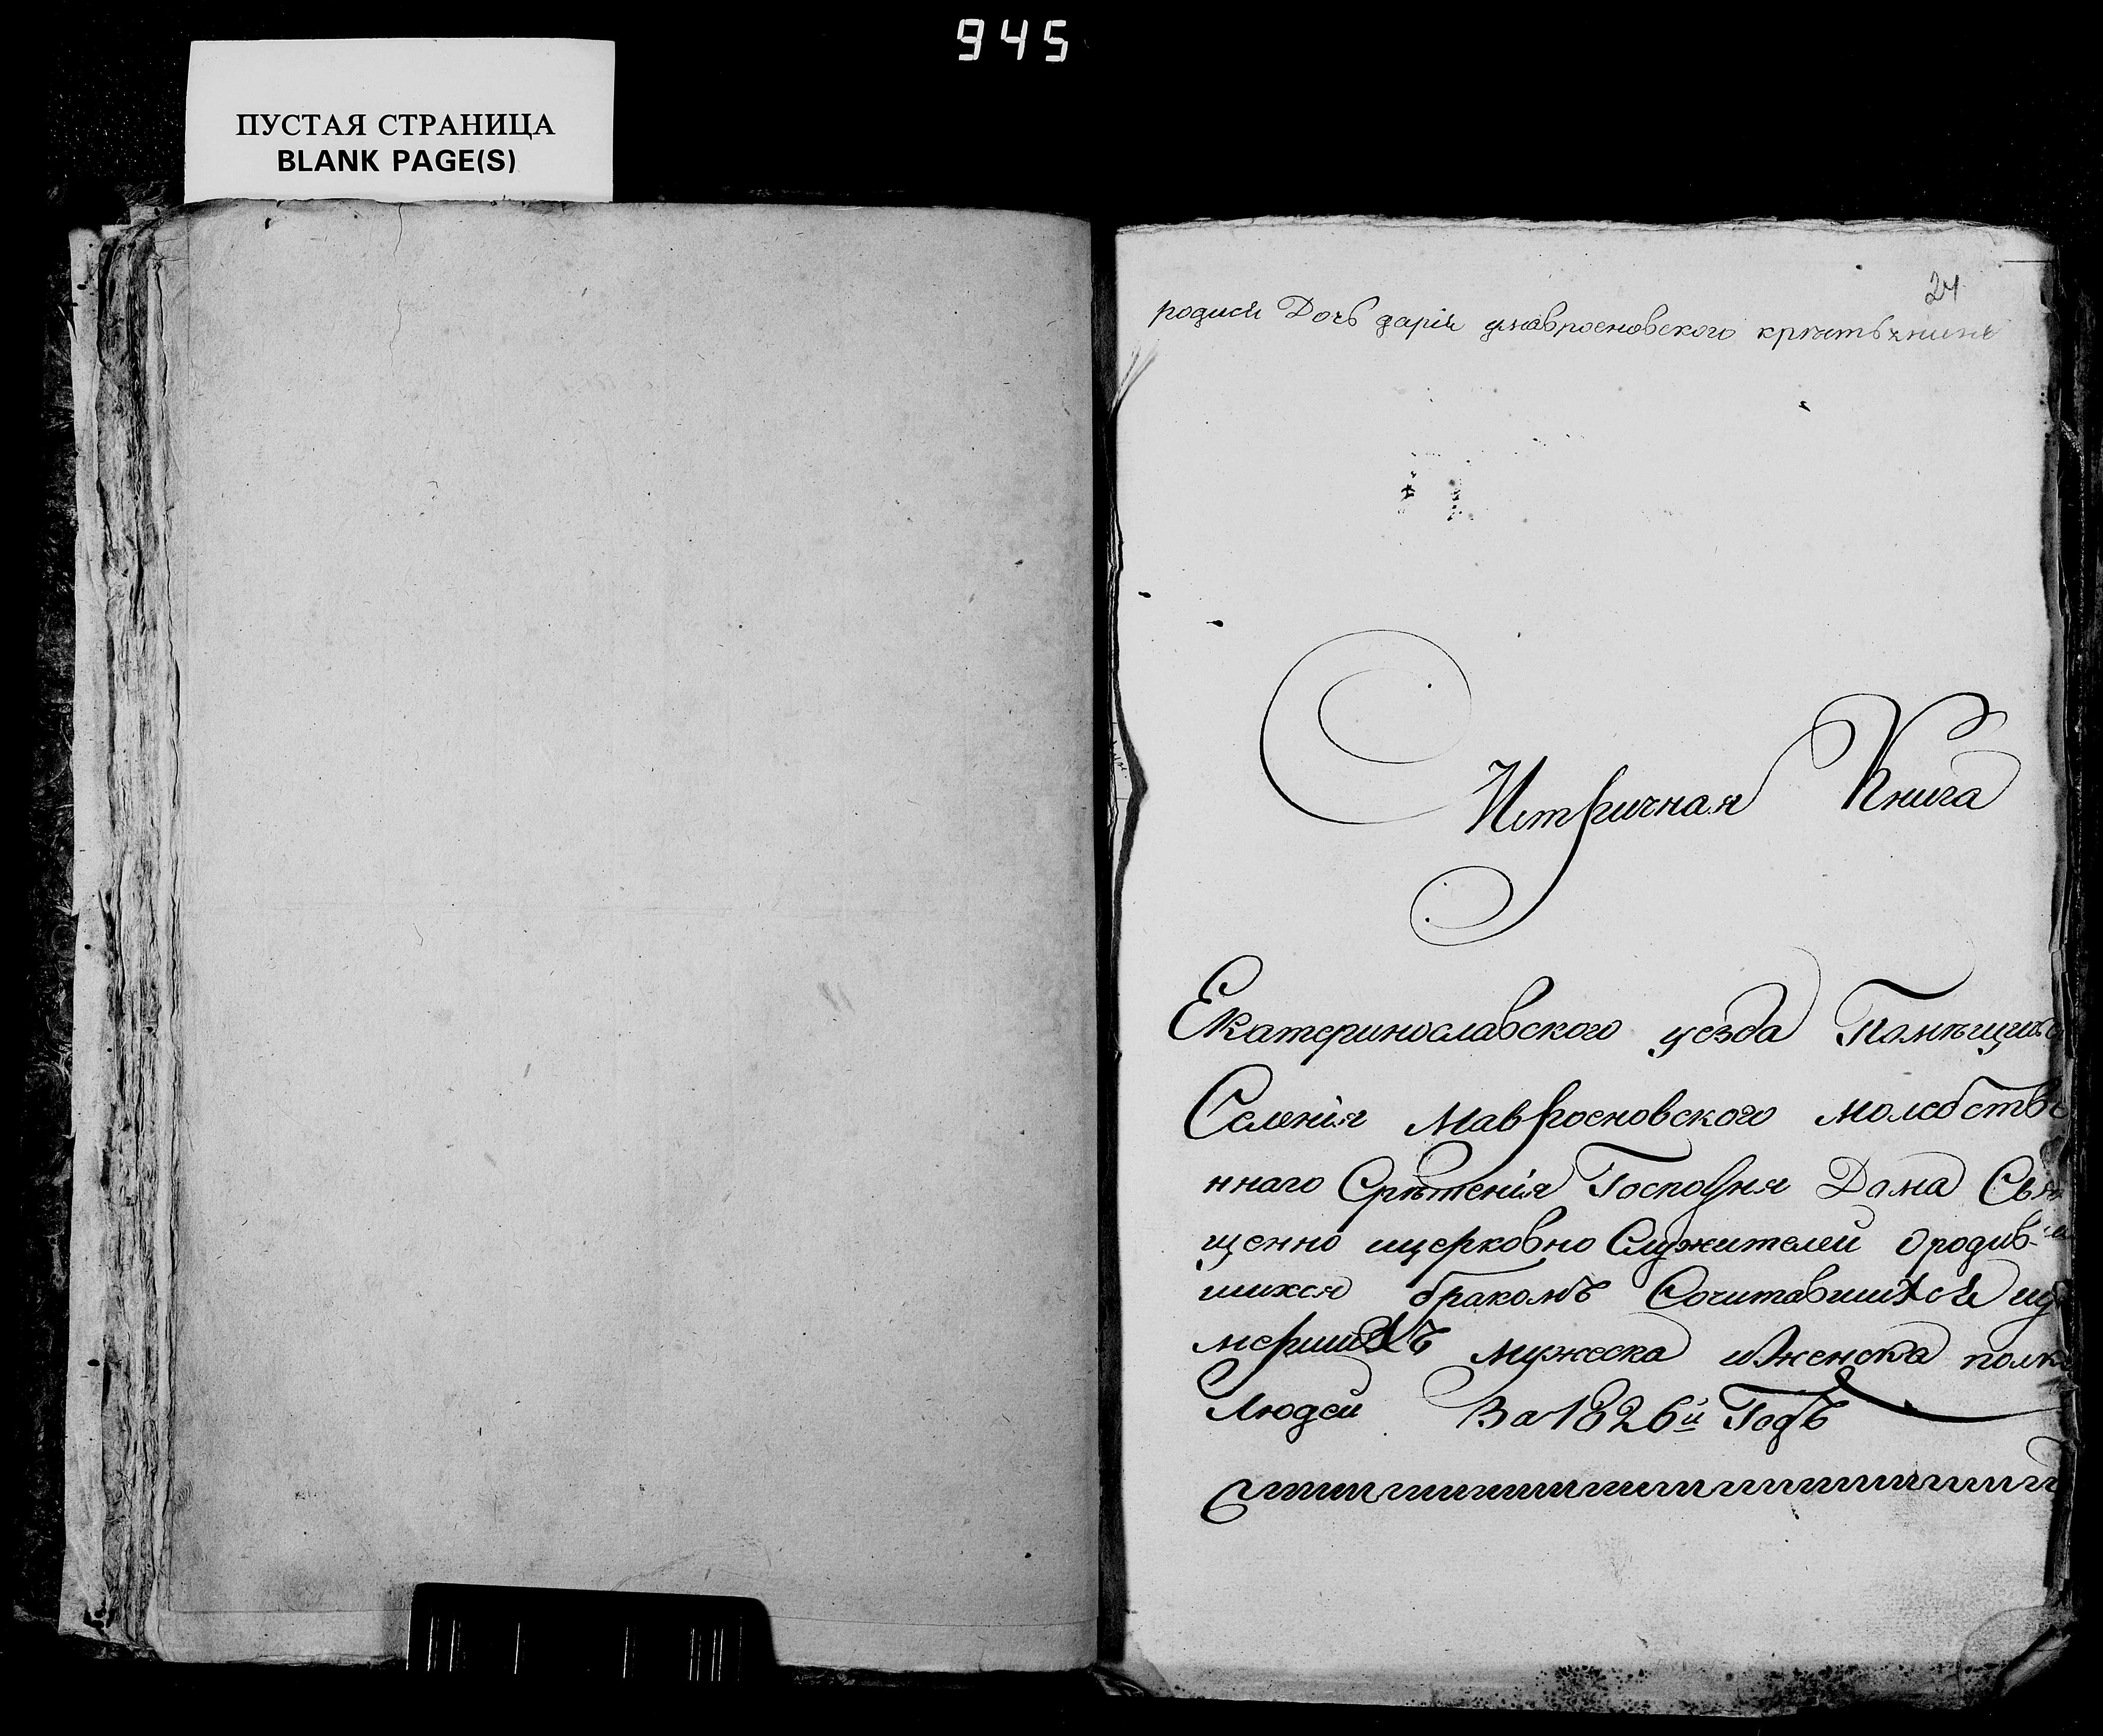 945
ПУСТАЯ СТРАНИЦА
BLANK PAGE(S)
24
родися Дочь дарія умавроеновского
Метричная Книга
Екатеринославского уезда Помѣщичя
Селенія Мавроеновского молебстве
ннаго Срѣтенія Господня Дома Свя
щенно ицерковно Служителей Ородив-
шихся бракомъ Сочитавшихся иу
мершихъ мужеска иЖенска полка
Людей За 1826й Годъ